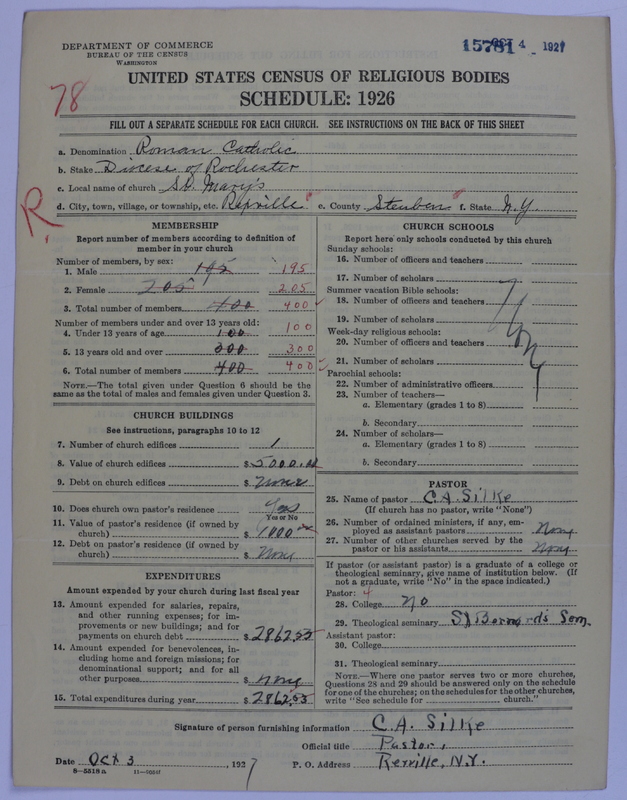 DEPARTMENT OF COMMERCE
BUREAU OF THE CENSUS
WASHINGTON
15781 OCT 4 1927
UNITED STATES CENSUS OF RELIGIOUS BODIES
SCHEDULE: 1926
78
FILL OUT A SEPARATE SCHEDULE FOR EACH CHURCH. SEE INSTRUCTIONS ON THE BACK OF THIS SHEET
a. Denomination Roman Catholic
b. Stake Diocese of Rochester
c. Local name of church St. Mary's
d. City, town, village, or township, etc. Rexville e. County Steuben f. State N.Y.
R
MEMBERSHIP
Report number of members according to definition of
member in your church
Number of members, by sex:
1. Male 195 195
2. Female 205 205
3. Total number of members 400 400
Number of members under and over 13 years old:
4. Under 13 years of age 100 100
5. 13 years old and over 300 300
6. Total number of members 400 400
NOTE.—The total given under Question 6 should be
same as the total of males and females given under Question 3.
CHURCH BUILDINGS
See instructions, paragraphs 10 to 12
7. Number of church edifices 1
8. Value of church edifices $5000.00
9. Debt on church edifices $None
10. Does church own pastor's residence Yes
Yes or No
11. Value of pastor's residence (if owned by
church) $1000
12. Debt on pastor's residence (if owned by
church) $None
EXPENDITURES
Amount expended by your church during last fiscal year
13. Amount expended for salaries, repairs,
and other running expenses; for im-
provements or new buildings; and for
payments on church debt $2862.53
14. Amount expended for benevolences, in-
cluding home and foreign missions; for
denominational support; and for all
other purposes $None
15. Total expenditures during year $2862.53
CHURCH SCHOOLS
Report here only schools conducted by this church
Sunday schools:
16. Number of officers and teachers
17. Number of scholars
Summer vacation Bible schools:
18. Number of officers and teachers
19. Number of scholars
Week-day religious schools:
20. Number of officers and teachers
21. Number of scholars
Parochial schools:
22. Number of administrative officers
23. Number of teachers—
a. Elementary (grades 1 to 8)
b. Secondary
24. Number of scholars—
a. Elementary (grades 1 to 8)
b. Secondary
PASTOR
25. Name of pastor C.A. Silke
(If church has no pastor, write "None")
26. Number of ordained ministers, if any, em-
ployed as assistant pastors None
27. Number of other churches served by the
pastor or his assistants None
If pastor (or assistant pastor) is a graduate of a college or
theological seminary, give name of institution below. (If
not a graduate, write "No" in the space indicated.)
Pastor: 4
28. College No
29. Theological seminary St Bernard's Sem.
Assistant pastor:
30. College
31. Theological seminary
NOTE.—Where one pastor serves two or more churches,
Questions 28 and 29 should be answered only on the schedule
for one of the churches; on the schedules for the other churches,
write "See schedule for church."
Signature of person furnishing information C.A. Silke
Official title Pastor,
Date Oct 3, 1927 P. O. Address Rexville, N.Y.
8—5518 a